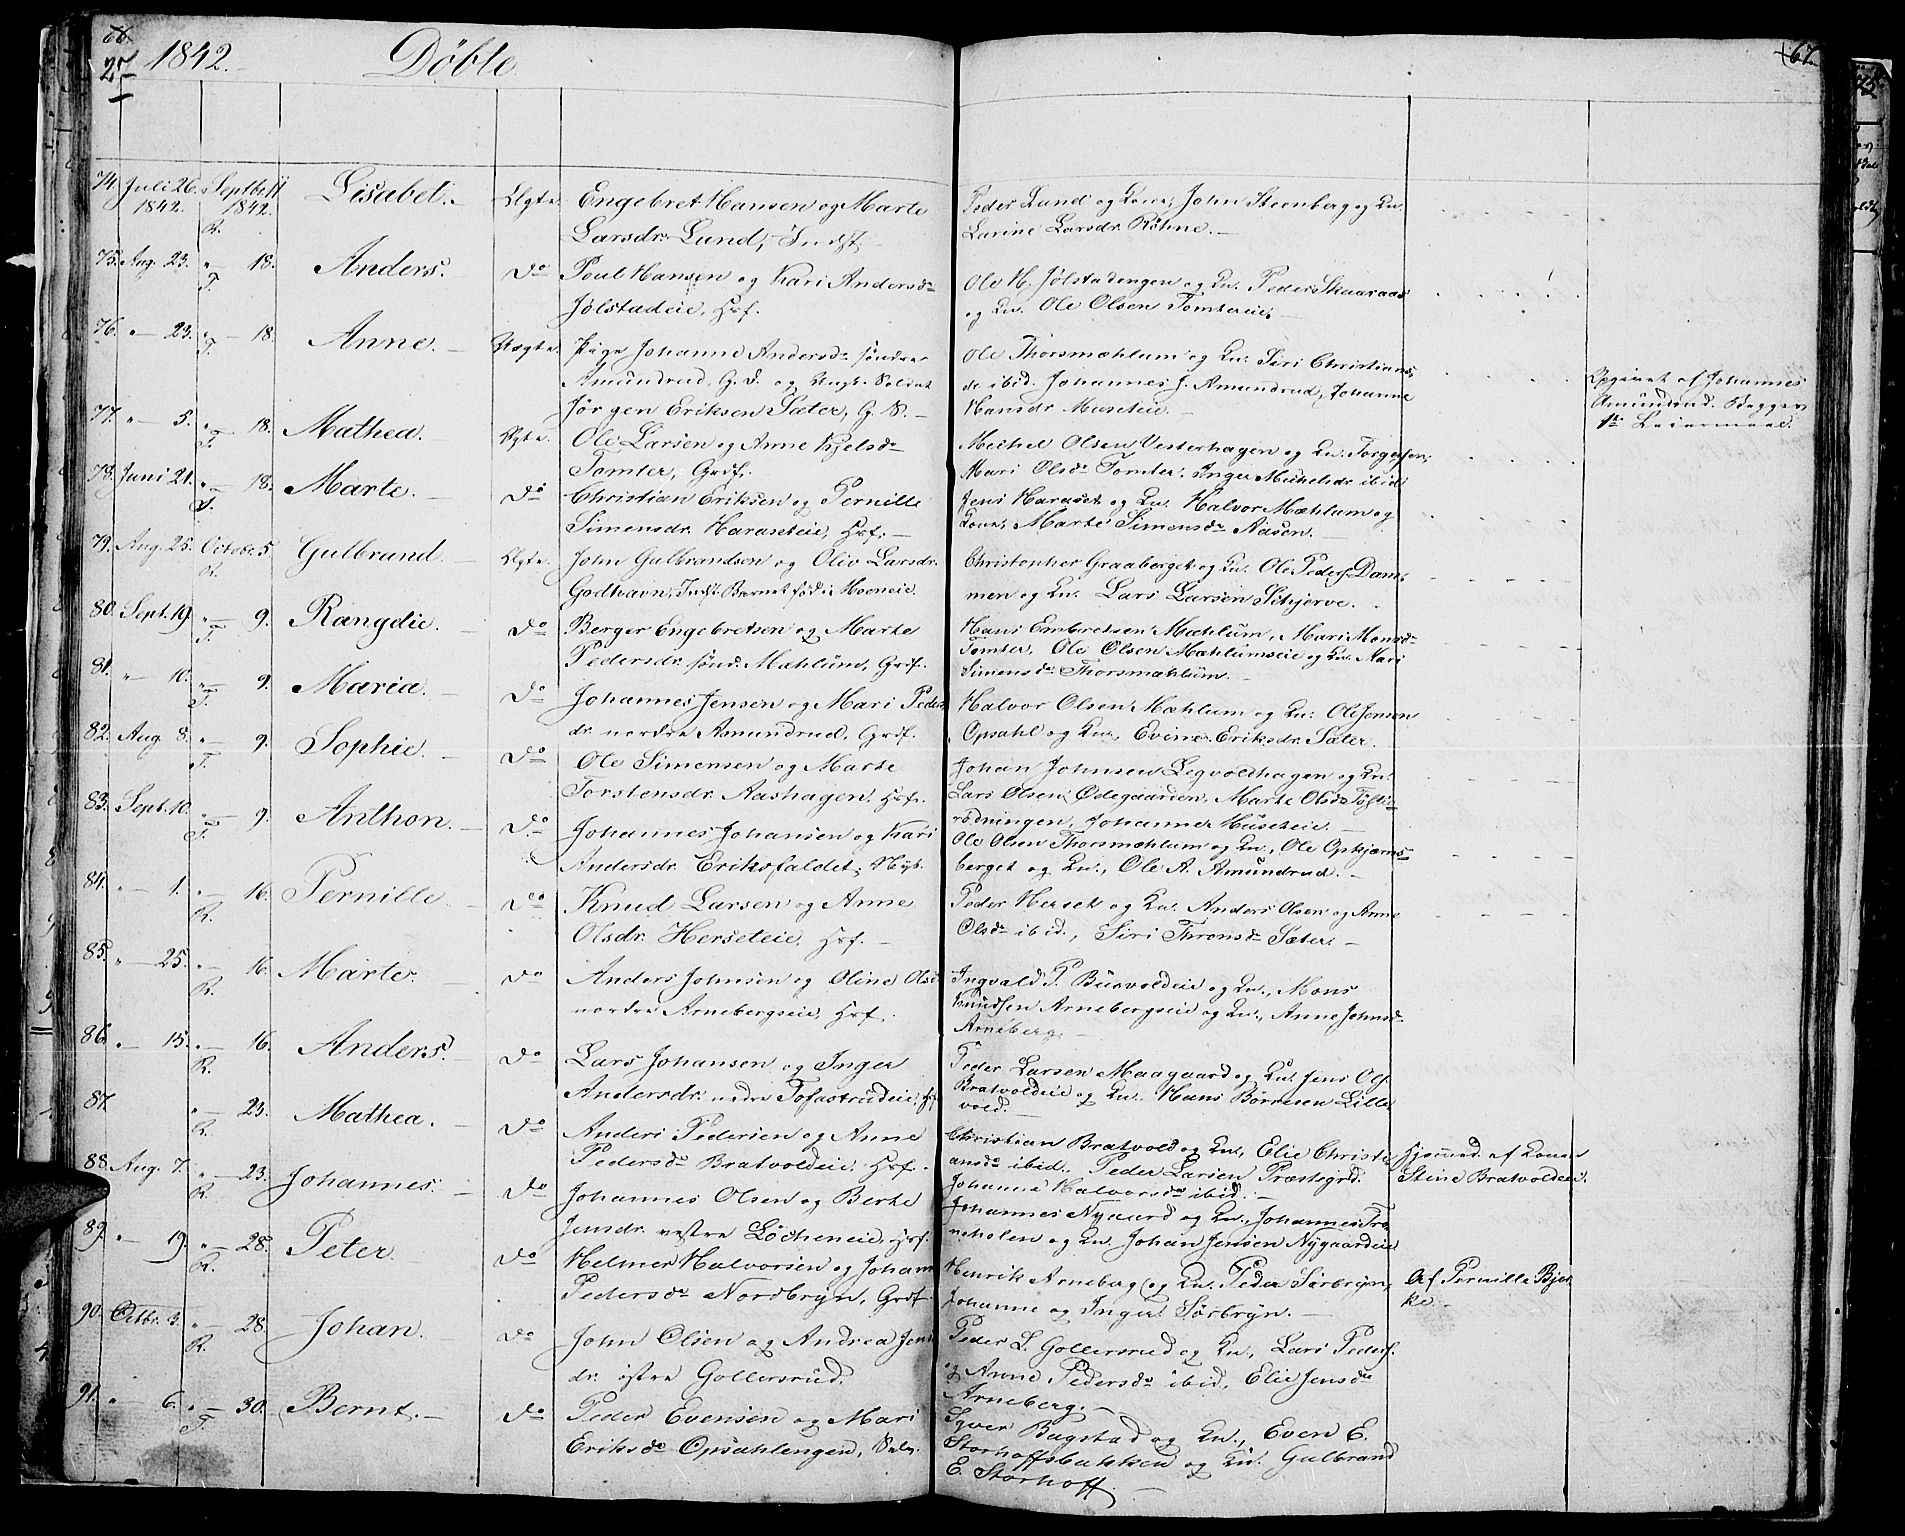 66.
27
1842.
Döbte
67.
74. Juli 26. 1842. Septbr. 11 1842. R. Lisabet. Ægte. Engebret Hansen og Marte
Larsdr. Lund, Indst.
Peder Lund og Kone, John Steenberg og Kn.
Larine Larsdr. Röhne.
75. Aug. 23. " 18. T. Anders. Do Poul Hansen og Kari Andersdr
Jölstadeie, Hsf.
Ole H. Jölstadengen og Kn. Peder Skaaraas
og Kn. Ole Olsen Tomtereie.
76. " 23. " 18. T. Anne. Uægte. Pige Johanne Andersdr. söndre
Amundrud, G. D. og Ungk. Soldat
Jörgen Eriksen Sæter, G. S.
Ole Thorsmæhlum og Kn. Siri Christians
dr. ibid. Johannes J. Amundrud, Johanne
Hansdr Museteie.
Opgivet af Johannes
Amundrud. Begges
1te Leiermaal.
77. " 5. " 18. T. Mathea. Ægte. Ole Larsen og Anne Kjelsdr
Tomter, Grdf.
Michel Olsen Vesterhagen og Kn. Torgersen,
Mari Olsdr Tomter, Inger Michelsdr. ibid
78. Juni 21. " 18. T. Marte. Do Christian Eriksen og Pernille
Simensdr. Haraseteie, Hsf.
Jens Haraset og Kn. Halvor Mæhlum og
Kone, Marte Simensdr Aasen.
79. Aug. 25. Octobr. 5 R. Gulbrand. Ægte. John Gulbrandsen og Oliv Larsdr.
Godthavn, Indst. Barnet födt i Moeneie.
Christopher Graaberget og Kn. Ole Peders. Dam
men og Kn. Lars Larsen Schjerve.
80. Sept. 19. " 9. T. Rangdie. Do Berger Engebretsen og Marte
Pedersdr. sönd. Mæhlum, Grdf.
Hans Embretsen Mæhlum, Mari Monsdr
Tomter, Ole Olsen Mæhlumseie og Kn. Mari
Simensdr Thorsmæhlum.
81. " 10. " 9. T. Maria. Do Johannes Jensen og Mari Peders
dr. nordre Amundrud, Grdf.
Halvor Olsen Mæhlum og Kn. Ole Jensen
Opsahl og Kn. Evine Eriksdr. Sæter.
82. Aug. 8. " 9. T. Sophie. Do Ole Simensen og Marte
Torstensdr. Aashagen, Hsf.
Johan Johnsen Legvoldhagen og Kn.
Lars Olsen Ødegaarden, Marte Olsdr Töfte
rödningen, Johanne Museteie.
83. Sept. 10. " 9. T. Anthon. Do. Johannes Johansen og Kari
Andersdr. Eriksfaldet, Nyb.
Ole Olsen Thorsmæhlum og Kn., Ole Opkjærns
berget og Kn., Ole A. Amundrud.
84. " 1. " 16. R. Pernille. Do Knud Larsen og Anne
Olsdr. Herseteie, Hsf.
Peder Herset og Kn. Anders Olsen og Anne
Olsdr ibid., Siri Thronsdr Sæter.
85. " 25. " 16. R. Marte. Do Anders Johnsen og Oline Olsd
nordre Arnebergseie, Hsf.
Ingvald P. Busvoldeie og Kn., Mons
Knudsen Arnebergseie og Kn., Anne Johnsdr
Arneberg.
86. " 15. " 16. R. Anders. Do Lars Johansen og Inger
Andersdr. nedre Tofastrudeie, Hsf
Peder Larsen Maagaard og Kn. Jens Ols.
Bratvoldeie og Kn. Hans Börresen Lille
vold.
87. " 23. R. Mathea. Do Anders Pedersen og Anne
Pedersdr Bratvoldeie, Hsf.
Christian Bratvold og Kn., Elie Christi
ansdr ibid., Peder Larsen Præstegrd.
Johanne Halvorsdr ibid.
Hjemmed. af Konen
Stine Bratvoldeie.
88. Aug. 7. " 23. R. Johannes. Do Johannes Olsen og Berte
Jensdr. vestre Löcheneie, Hsf.
Johannes Nygaard og Kn., Johannes Tra
neholen og Kn. Johan Jensen Nygaardeie
89. " 19. " 28. R. Peter. Do Helmer Halvorsen og Johanne
Pedersdr Nordbryn, Grdf.
Henrik Arneberg og Kn. Peder Sörbryn,
Johanne og Inger Sörbryn.
Af Pernille Bjer
ke.
90. Octbr. 3. " 28. R. Johan. Do John Olsen og Andrea Jens
dr. östre Gollersrud.
Peder L. Gollersrud og Kn., Lars Peders.
og Anne Pedersdr ibid, Elie Jensdr
Arneberg.
91. " 6. " 30. T. Bernt. Do Peder Evensen og Mari
Eriksdr Opsahlengen, Selv.
Syver Bagstad og Kn., Even E.
Storhoffsbakken og Kn. Gulbrand
E. Storhoff